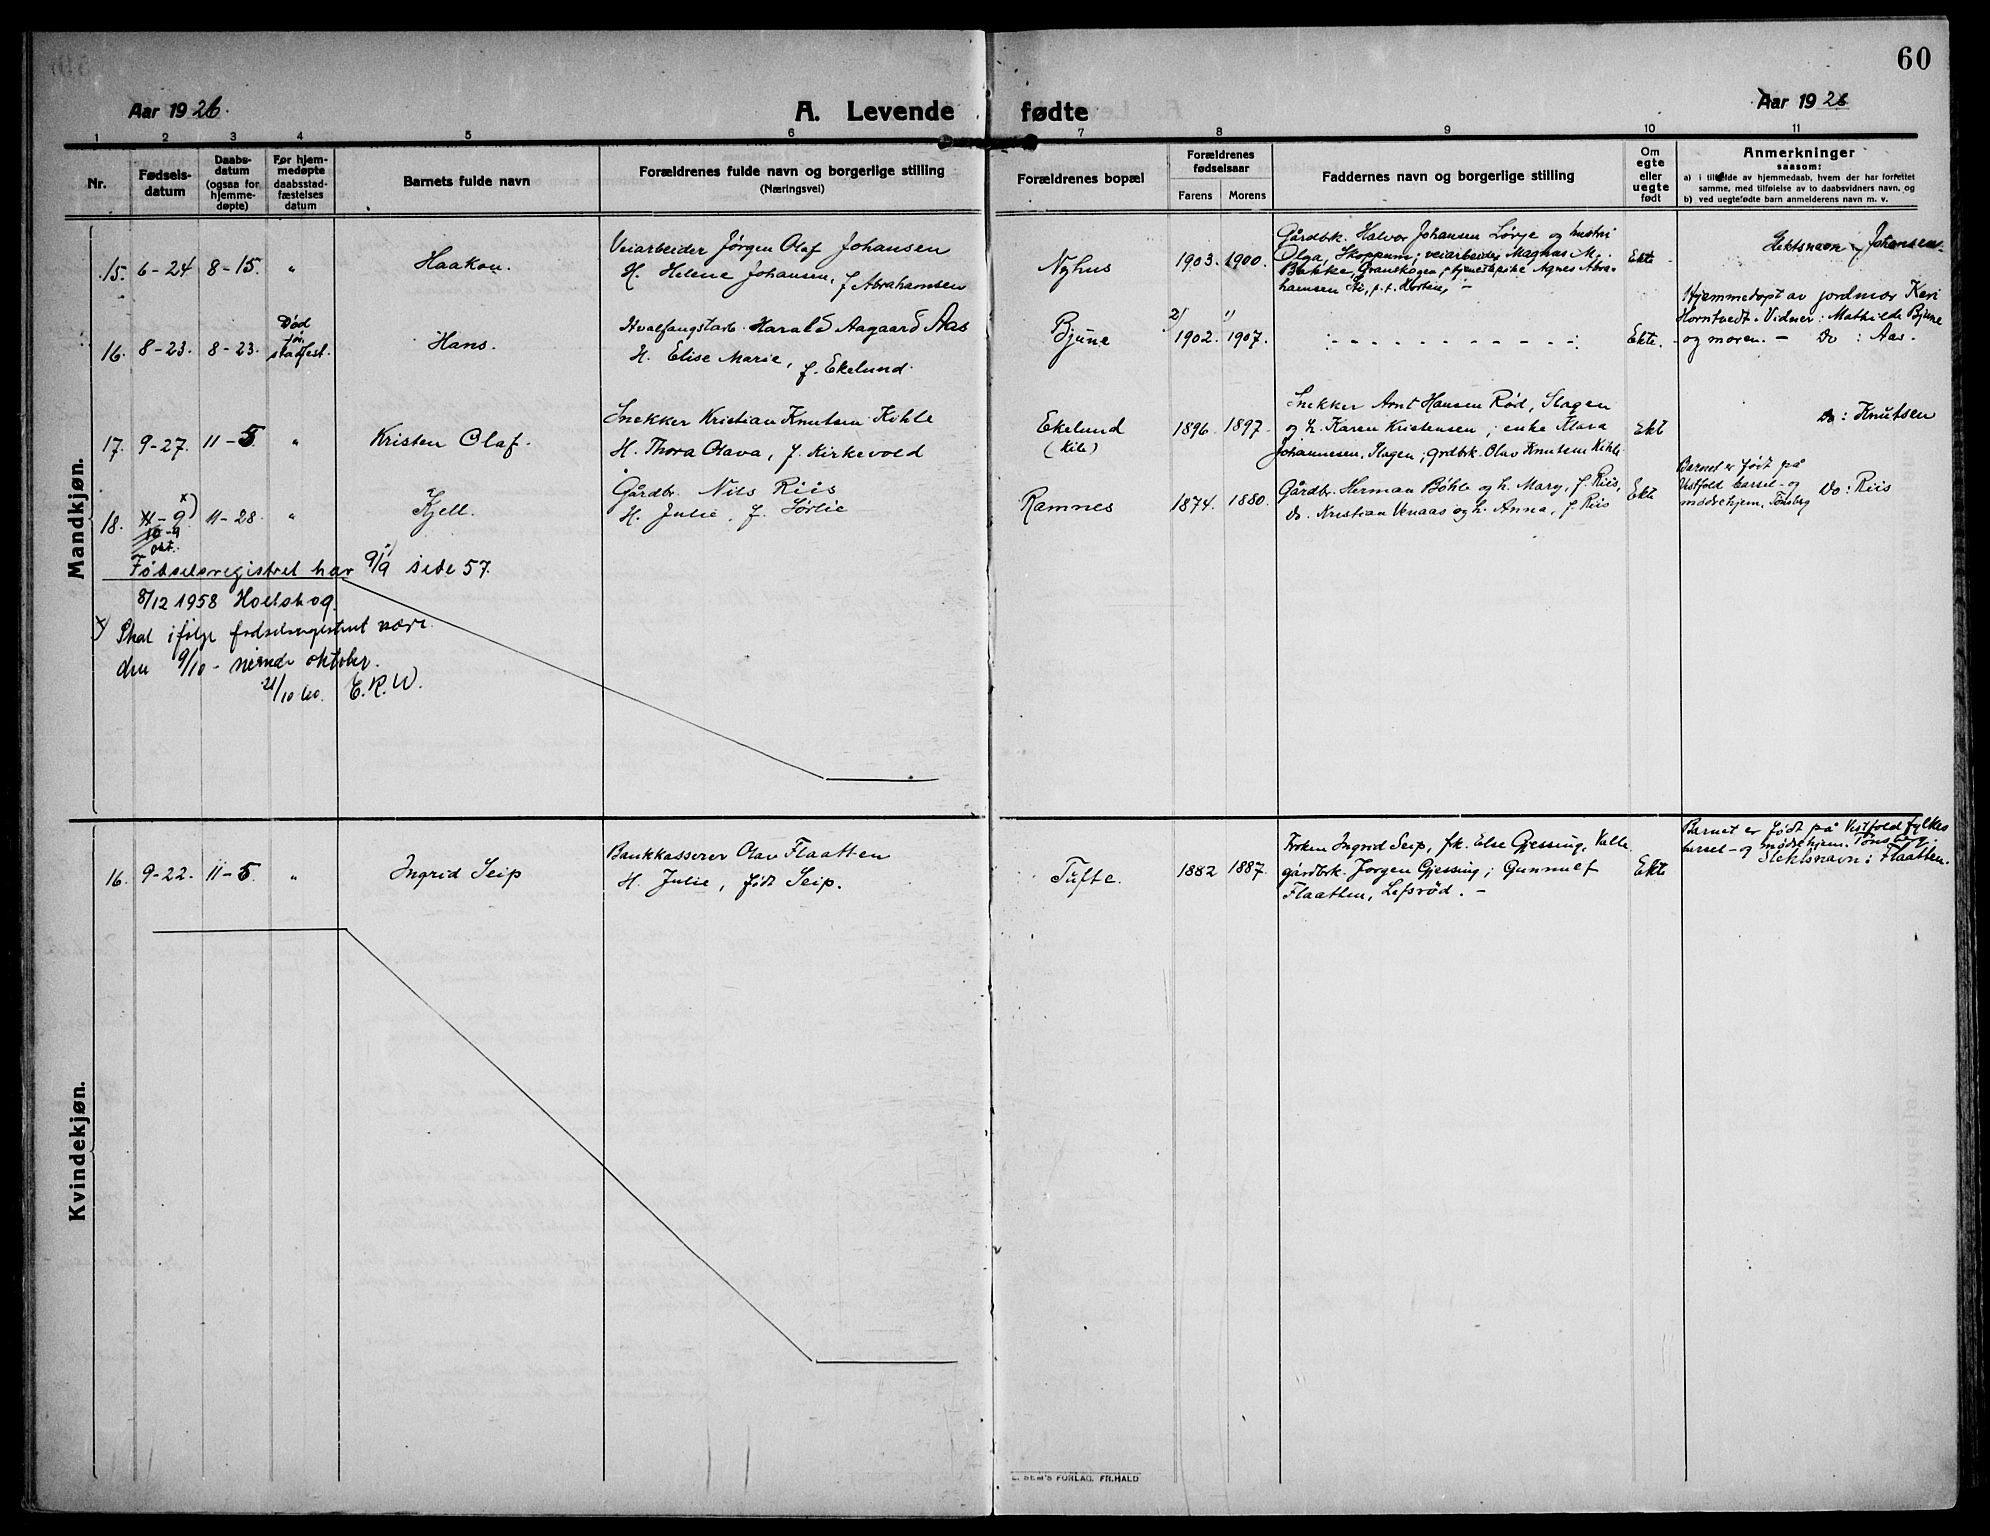 60
Aar 1926.
A. Levende fødte
Aar 1926
1 2 3 4 5 6 7 8 9 10 11
Nr.
Fødsels-
datum
Daabs-
datum
(ogsaa for
hjemme-
døpte)
Før hjem-
medøpte
daabsstad-
fæstelses
datum
Barnets fulde navn
Forældrenes fulde navn og borgerlige stilling
(Næringsvei)
Forældrenes bopæl
Forældrenes
fødselsaar
Farens Morens
Faddernes navn og borgerlige stilling
Om
egte
eller
uegte
født
Anmerkninger
saasom:
a) i tilfælde av hjemmedaab, hvem der har forrettet
samme, med tilføielse av to daabsvidners navn, og
b) ved uegtefødte barn anmelderens navn m. v.
Mandkjøn.
15. 6-24 8-15. "
Haakon.
Veiarbeider Jørgen Olaf Johansen
H. Helene Johansen, f. Abrahamsen
Nyhus
1903. 1900.
Gårdbr. Halvor Johansen Lørje og hustru
Olga, Skoppum; veiarbeider Magnus M.
Bakke, Granskogen; tjenestepike Agnes Abra-
hamsen Sti, p.t. Horten, -
Ekte
Slektsnavn: Johansen.
16. 8-23. 8-23.
Død
før
stadfest.
Hans.
Hvalfangstarb. Harald Aagaard Aas
H. Elise Marie, f. Ekelund.
Bjune
2) 1)
1902. 1907.
Ekte.
Hjemmedøpt av jordmor Kari
Horntvedt. Vidner: Mathilde Bjune
og moren. - Do : Aas.
17. 9-27. 11-5 "
Kristen Olaf.
Snekker Kristian Knutsen Kihle
H. Thora Olava, f. Kirkevold
Ekelund
(Kile)
1896. 1897.
Snekker Arnt Hansen Rød, Slagen
og h. Karen Kristensen; enke Klara
Johannesen, Slagen; grdbrk. Olav Knutsen Kihle.
Ekt
Do: Knutsen
18. 11-9 x)
10-9
okt.
11-28. "
Kjell.
Gårdbr. Nils Riis
H. Julie, f. Sørlie
Ramnes
1874. 1880.
Gårdbr. Herman Bøhle og h. Mary, f. Riis,
Do. Kristian Venaas og h. Anna, f. Riis
Ekte
Barnet er født på
Vestfold barsel- og
mødrehjem, Tønsberg Do: Riis
Fødselsregistret har 9/9 side 57.
8/12 1958 Holtskog.
x) Skal ifølge fødselsregistret være
den 9/10 - niende oktober.
21/10 60. E.R.W.
Kvindekjøn.
16. 9-22. 11-5. "
Ingrid Seip
Bankkasserer Olav Flaatten
H. Julie, født Seip.
Tufte.
1882 1887.
Frøken Ingrid Seip, frk. Else Gjessing, Valle
gårdbrk. Jørgen Gjessing; Gunnulf
Flaatten, Lefsrød. -
Ekte
Barnet er født på Vestfold fylkes
barsel- og mødrehjem, Tønsberg
Slektsnavn: Flaatten.
E. SEM'S FORLAG. FR.HALD